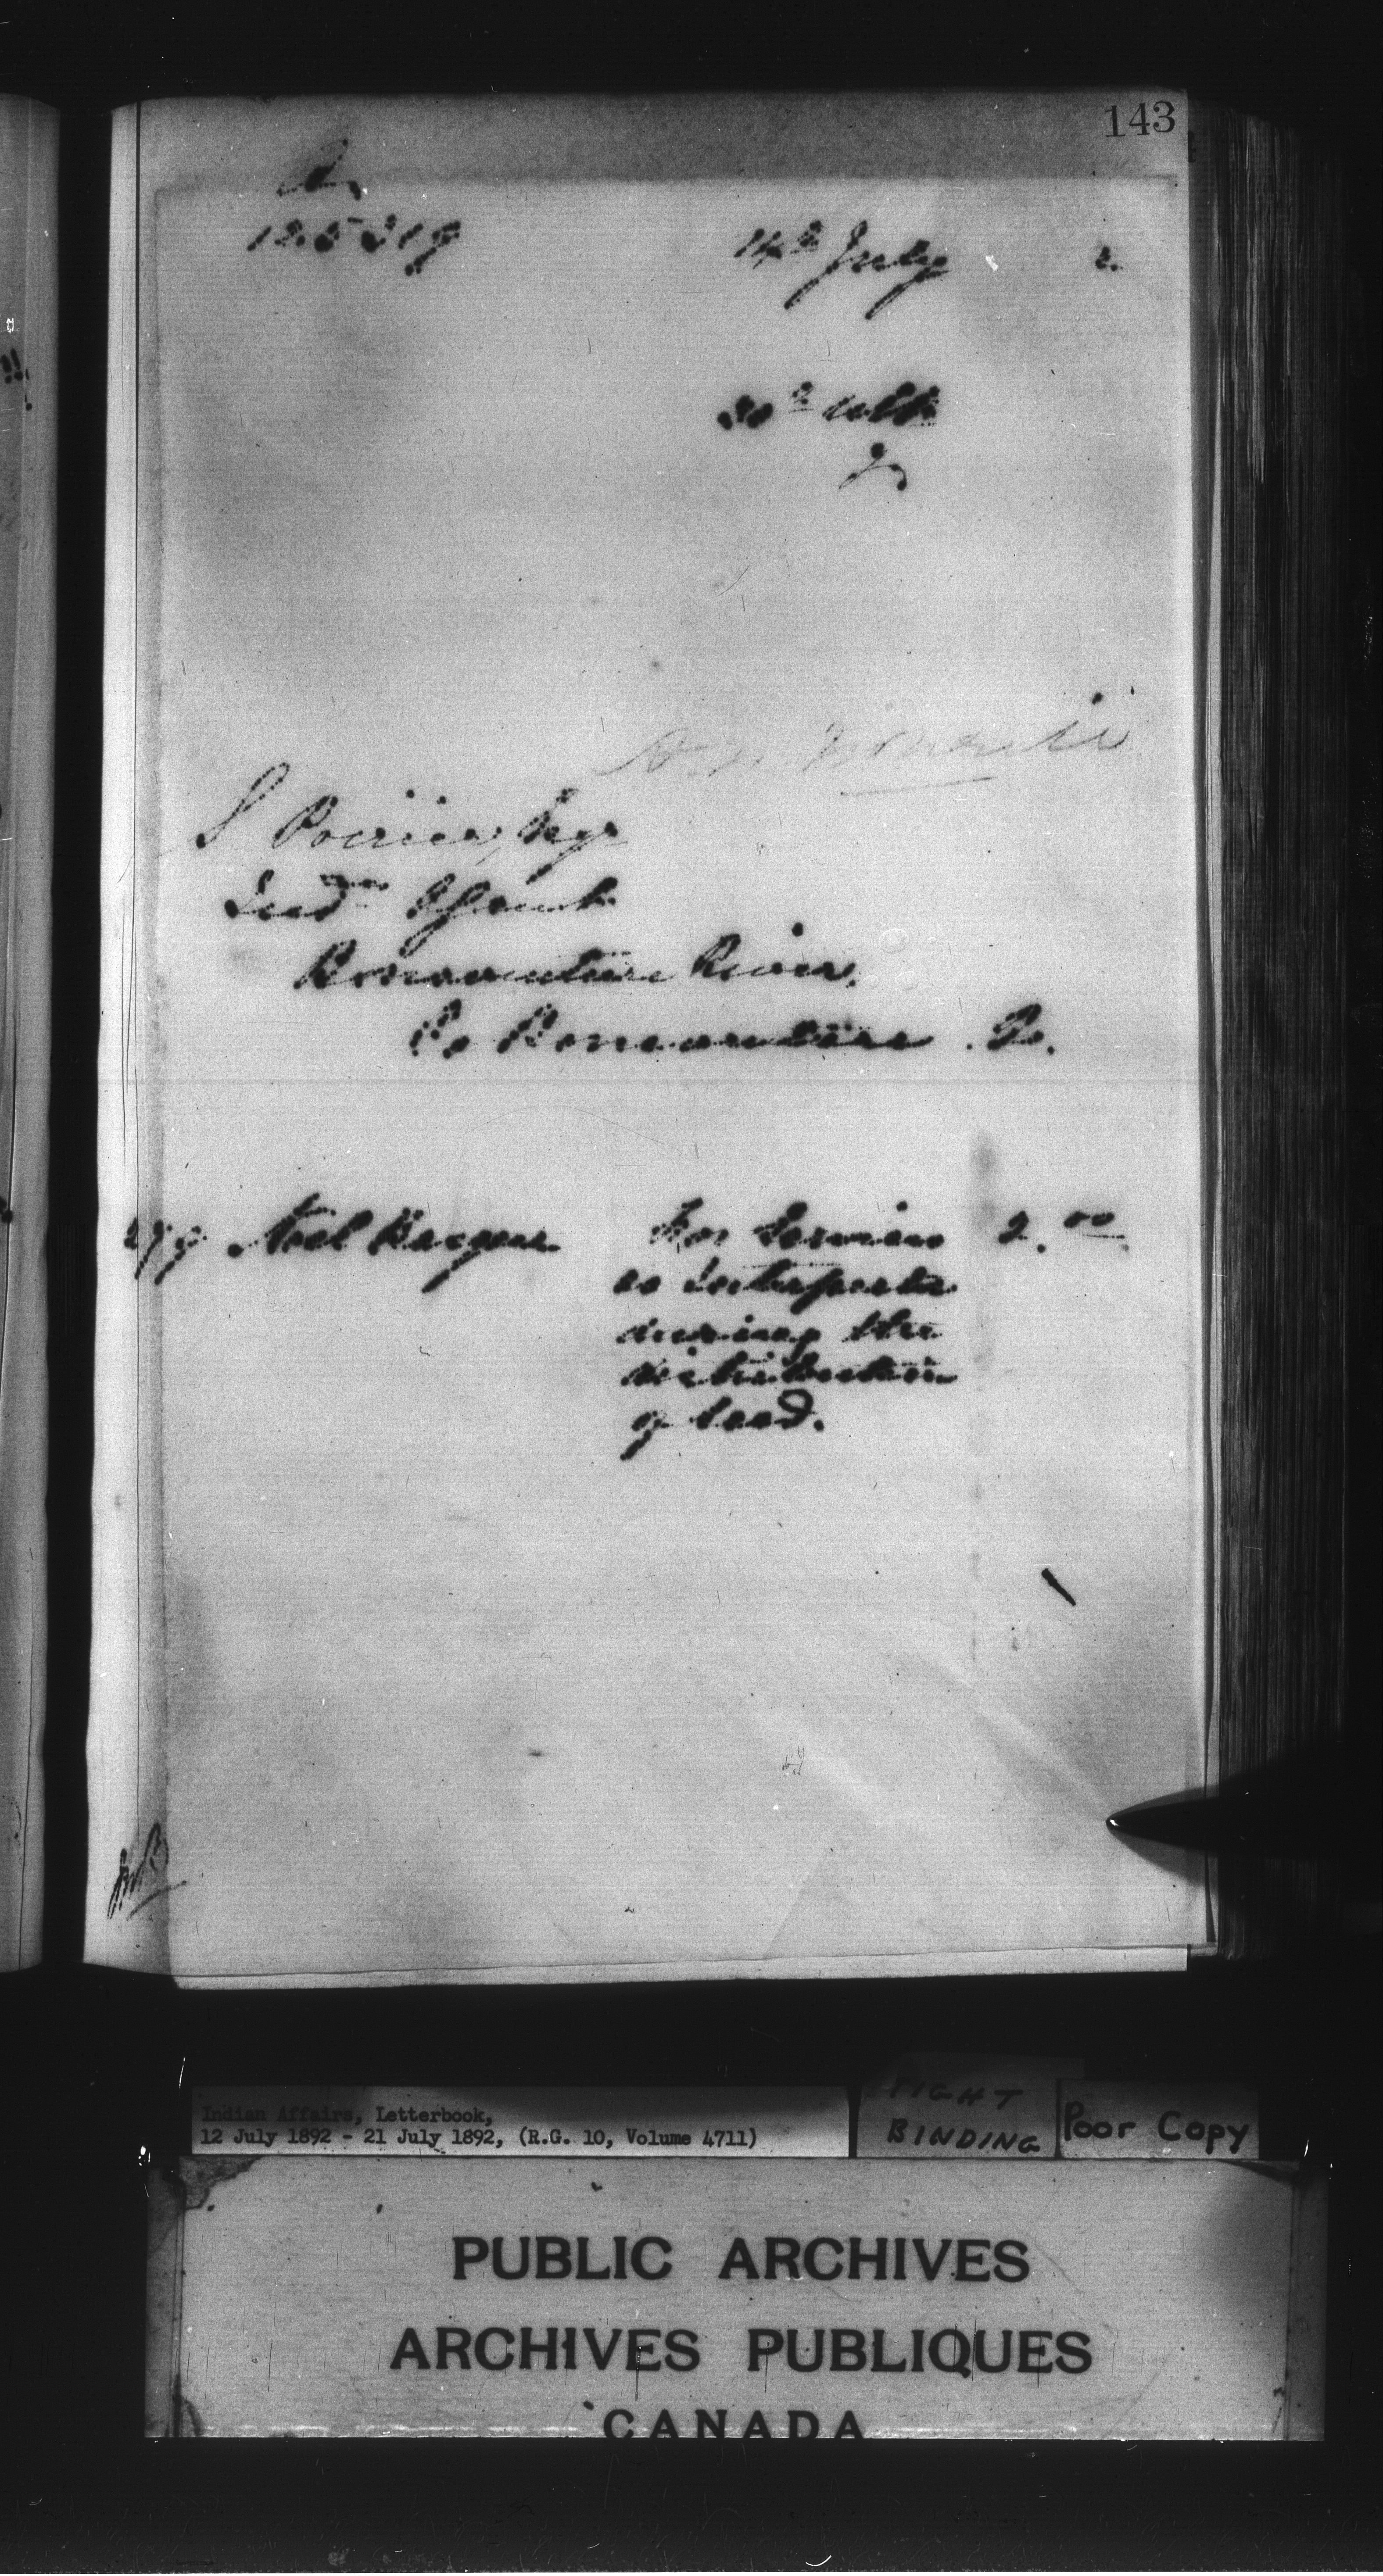 143
A.
14th July 2.
30th ult.
Indn Agent
Bonaventure River,
Co Bonaventure. Q.
279 Noel For Services 2.00
as Interpreter
during the
distribution
of seed.
Indian Affairs, Letterbook,
12 July 1892 - 21 July 1892, (R.G. 10, Volume 4711)
TIGHT
BINDING
Poor Copy
PUBLIC ARCHIVES
ARCHIVES PUBLIQUES
CANADA